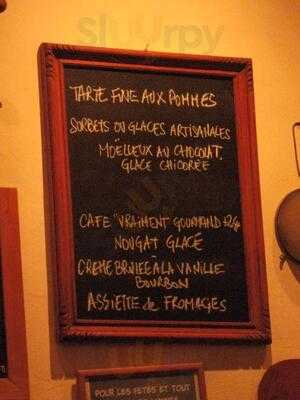 Sluurpy
TARTE FINE AUX POMMES
SORBETS OU GLACES ARTISANALES
MOËLLEUX AU CHOCOLAT,
GLACE CHICORÉE
CAFE "VRAIMENT GOURMAND
NOUGAT GLACÉ
CRÈME BRULÉE À LA VANILLE
BOURBON
ASSIETTE de FROMAGES
POUR LES FETES ET TOUT